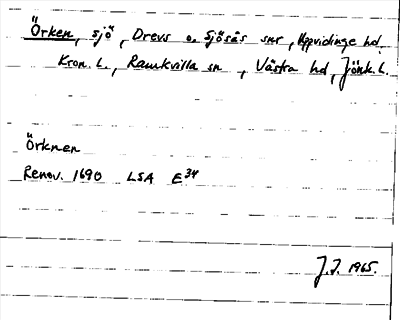 Örken, sjö, Drevs o. Sjösås snr, Uppvidinge hd,
Kron. L., Ramkvilla sn, Västra hd, Jönk. L.
Örknen
Renov. 1690 LSA E34
J.J. 1965.